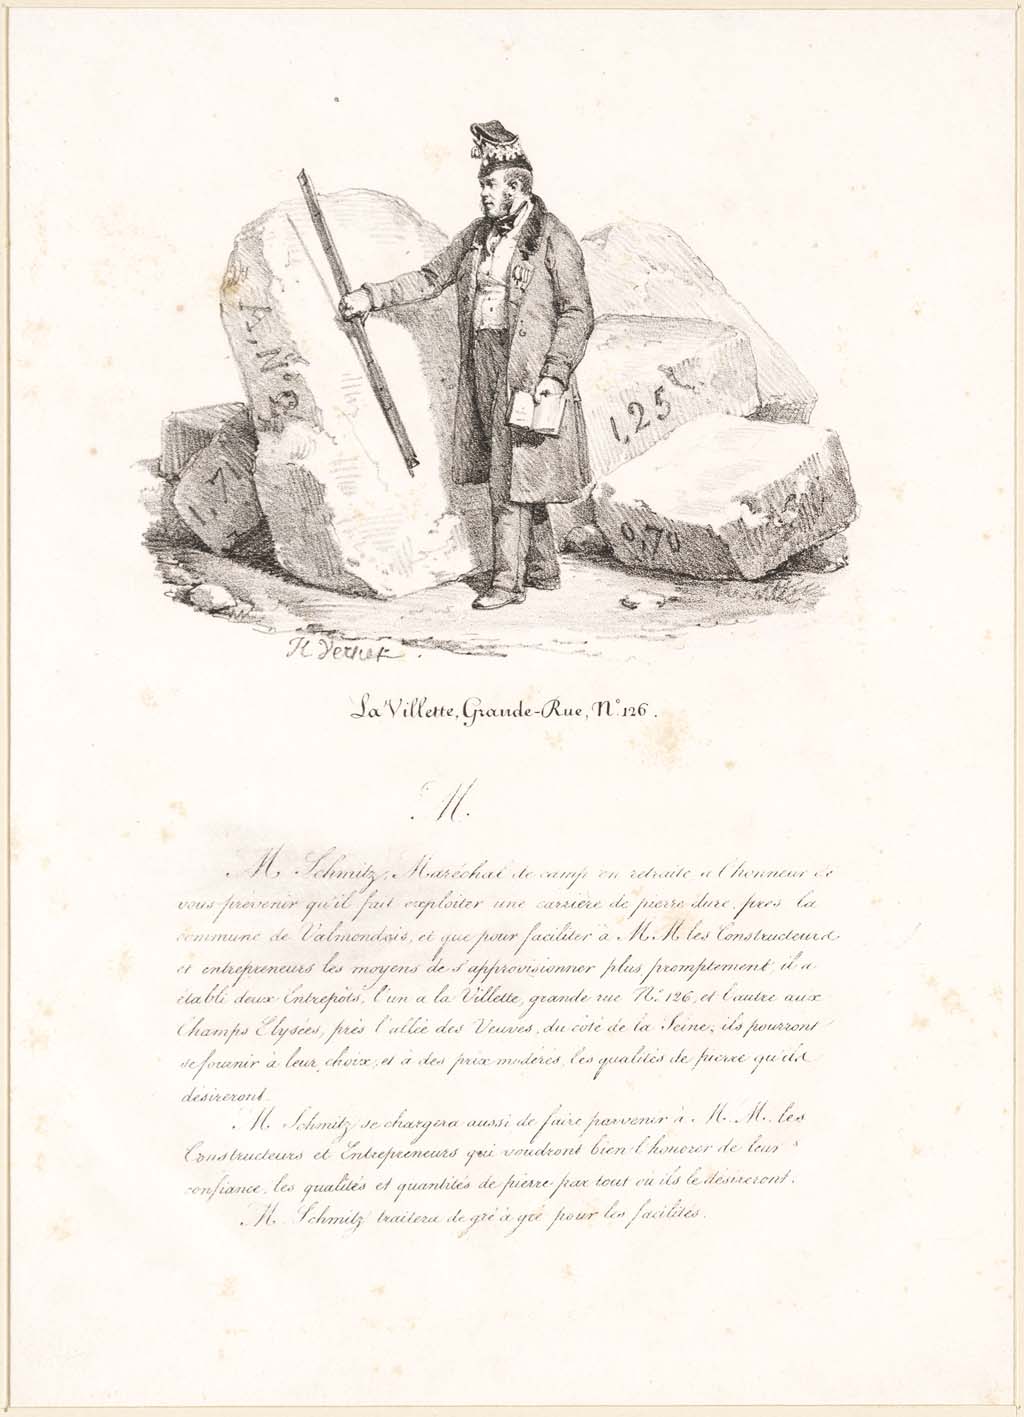 A. N.º 2
1,25
1,7
0,70
H Vernet
La Villette, Grande-Rue, N.º 126.
M.
M. Schmitz, Maréchal de camp en retraite a l'honneur de
vous prévenir qu'il fait exploiter une carrière de pierre dure, près la
commune de Valmondois, et que pour faciliter à M M. les Constructeurs
et entrepreneurs les moyens de s'approvisionner plus promptement, il a
établi deux Entrepôts, l'un a la Villette, grande rue N.º 126, et l'autre aux
Champs Elysées, près l'allée des Veuves, du côté de la Seine; ils pourront
se fournir à leur choix, et à des prix modérés, les qualités de pierre qu'ils
désireront.
M. Schmitz se chargera aussi de faire parvenir à M. M. les
Constructeurs et Entrepreneurs qui voudront bien l'honorer de leur
confiance, les qualités et quantités de pierre par tout où ils le désireront.
M. Schmitz traitera de gré à gré pour les facilités.